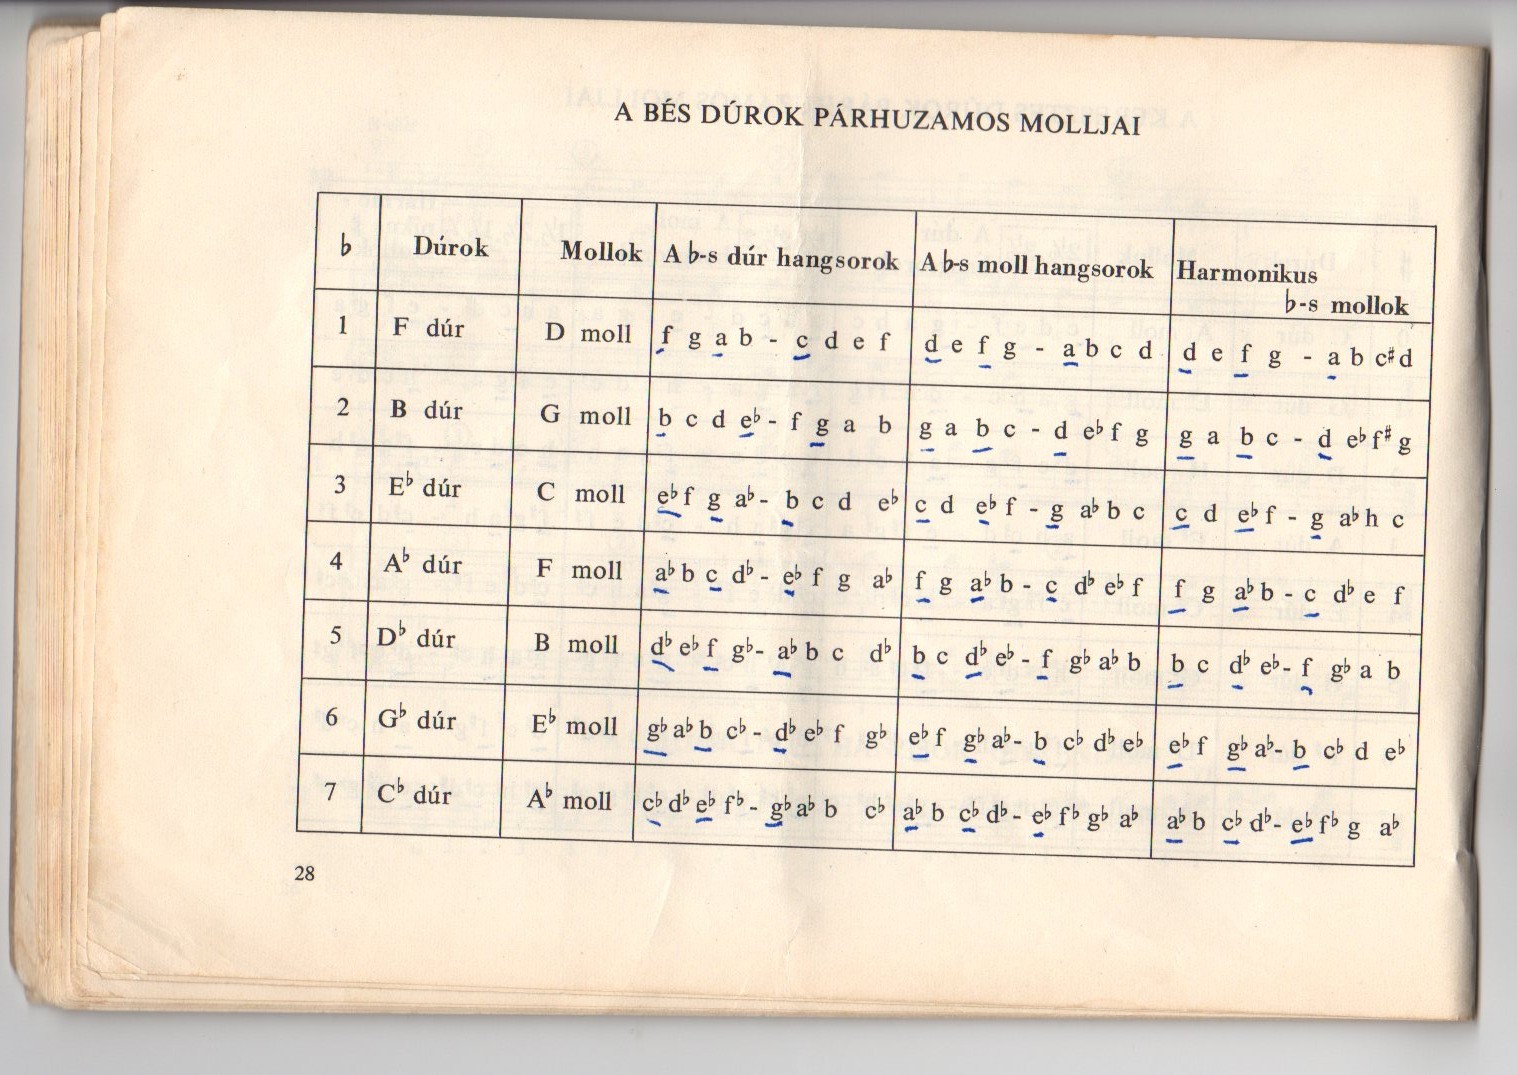 A BÉS DÚROK PÁRHUZAMOS MOLLJAI
♭ Dúrok Mollok A ♭-s dúr hangsorok A ♭-s moll hangsorok Harmonikus
♭-s mollok
1 F dúr D moll f g a b - c d e f d e f g - a b c d d e f g - a b c♯ d
2 B dúr G moll b c d e♭ - f g a b g a b c - d e♭ f g g a b c - d e♭ f♯ g
3 E♭ dúr C moll e♭ f g a♭ - b c d e♭ c d e♭ f - g a♭ b c c d e♭ f - g a♭ h c
4 A♭ dúr F moll a♭ b c d♭ - e♭ f g a♭ f g a♭ b - c d♭ e♭ f f g a♭ b - c d♭ e f
5 D♭ dúr B moll d♭ e♭ f g♭ - a♭ b c d♭ b c d♭ e♭ - f g♭ a♭ b b c d♭ e♭ - f g♭ a b
6 G♭ dúr E♭ moll g♭ a♭ b c♭ - d♭ e♭ f g♭ e♭ f g♭ a♭ - b c♭ d♭ e♭ e♭ f g♭ a♭ - b c♭ d e♭
7 C♭ dúr A♭ moll c♭ d♭ e♭ f♭ - g♭ a♭ b c♭ a♭ b c♭ d♭ - e♭ f♭ g♭ a♭ a♭ b c♭ d♭ - e♭ f♭ g a♭
28